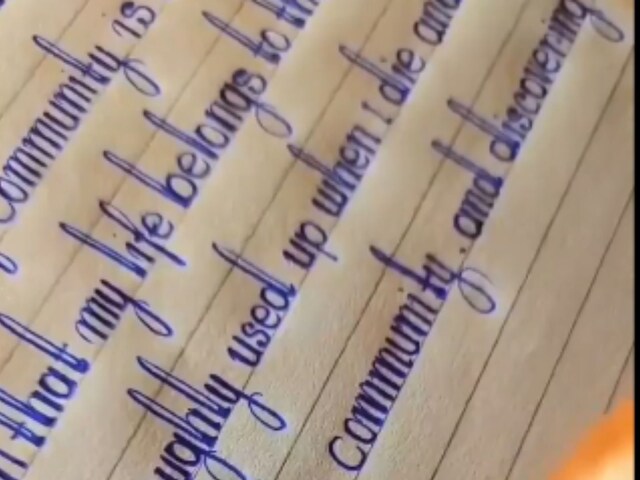 community is
that my life belongs to th
ughly used up when i die and
community . and discovering